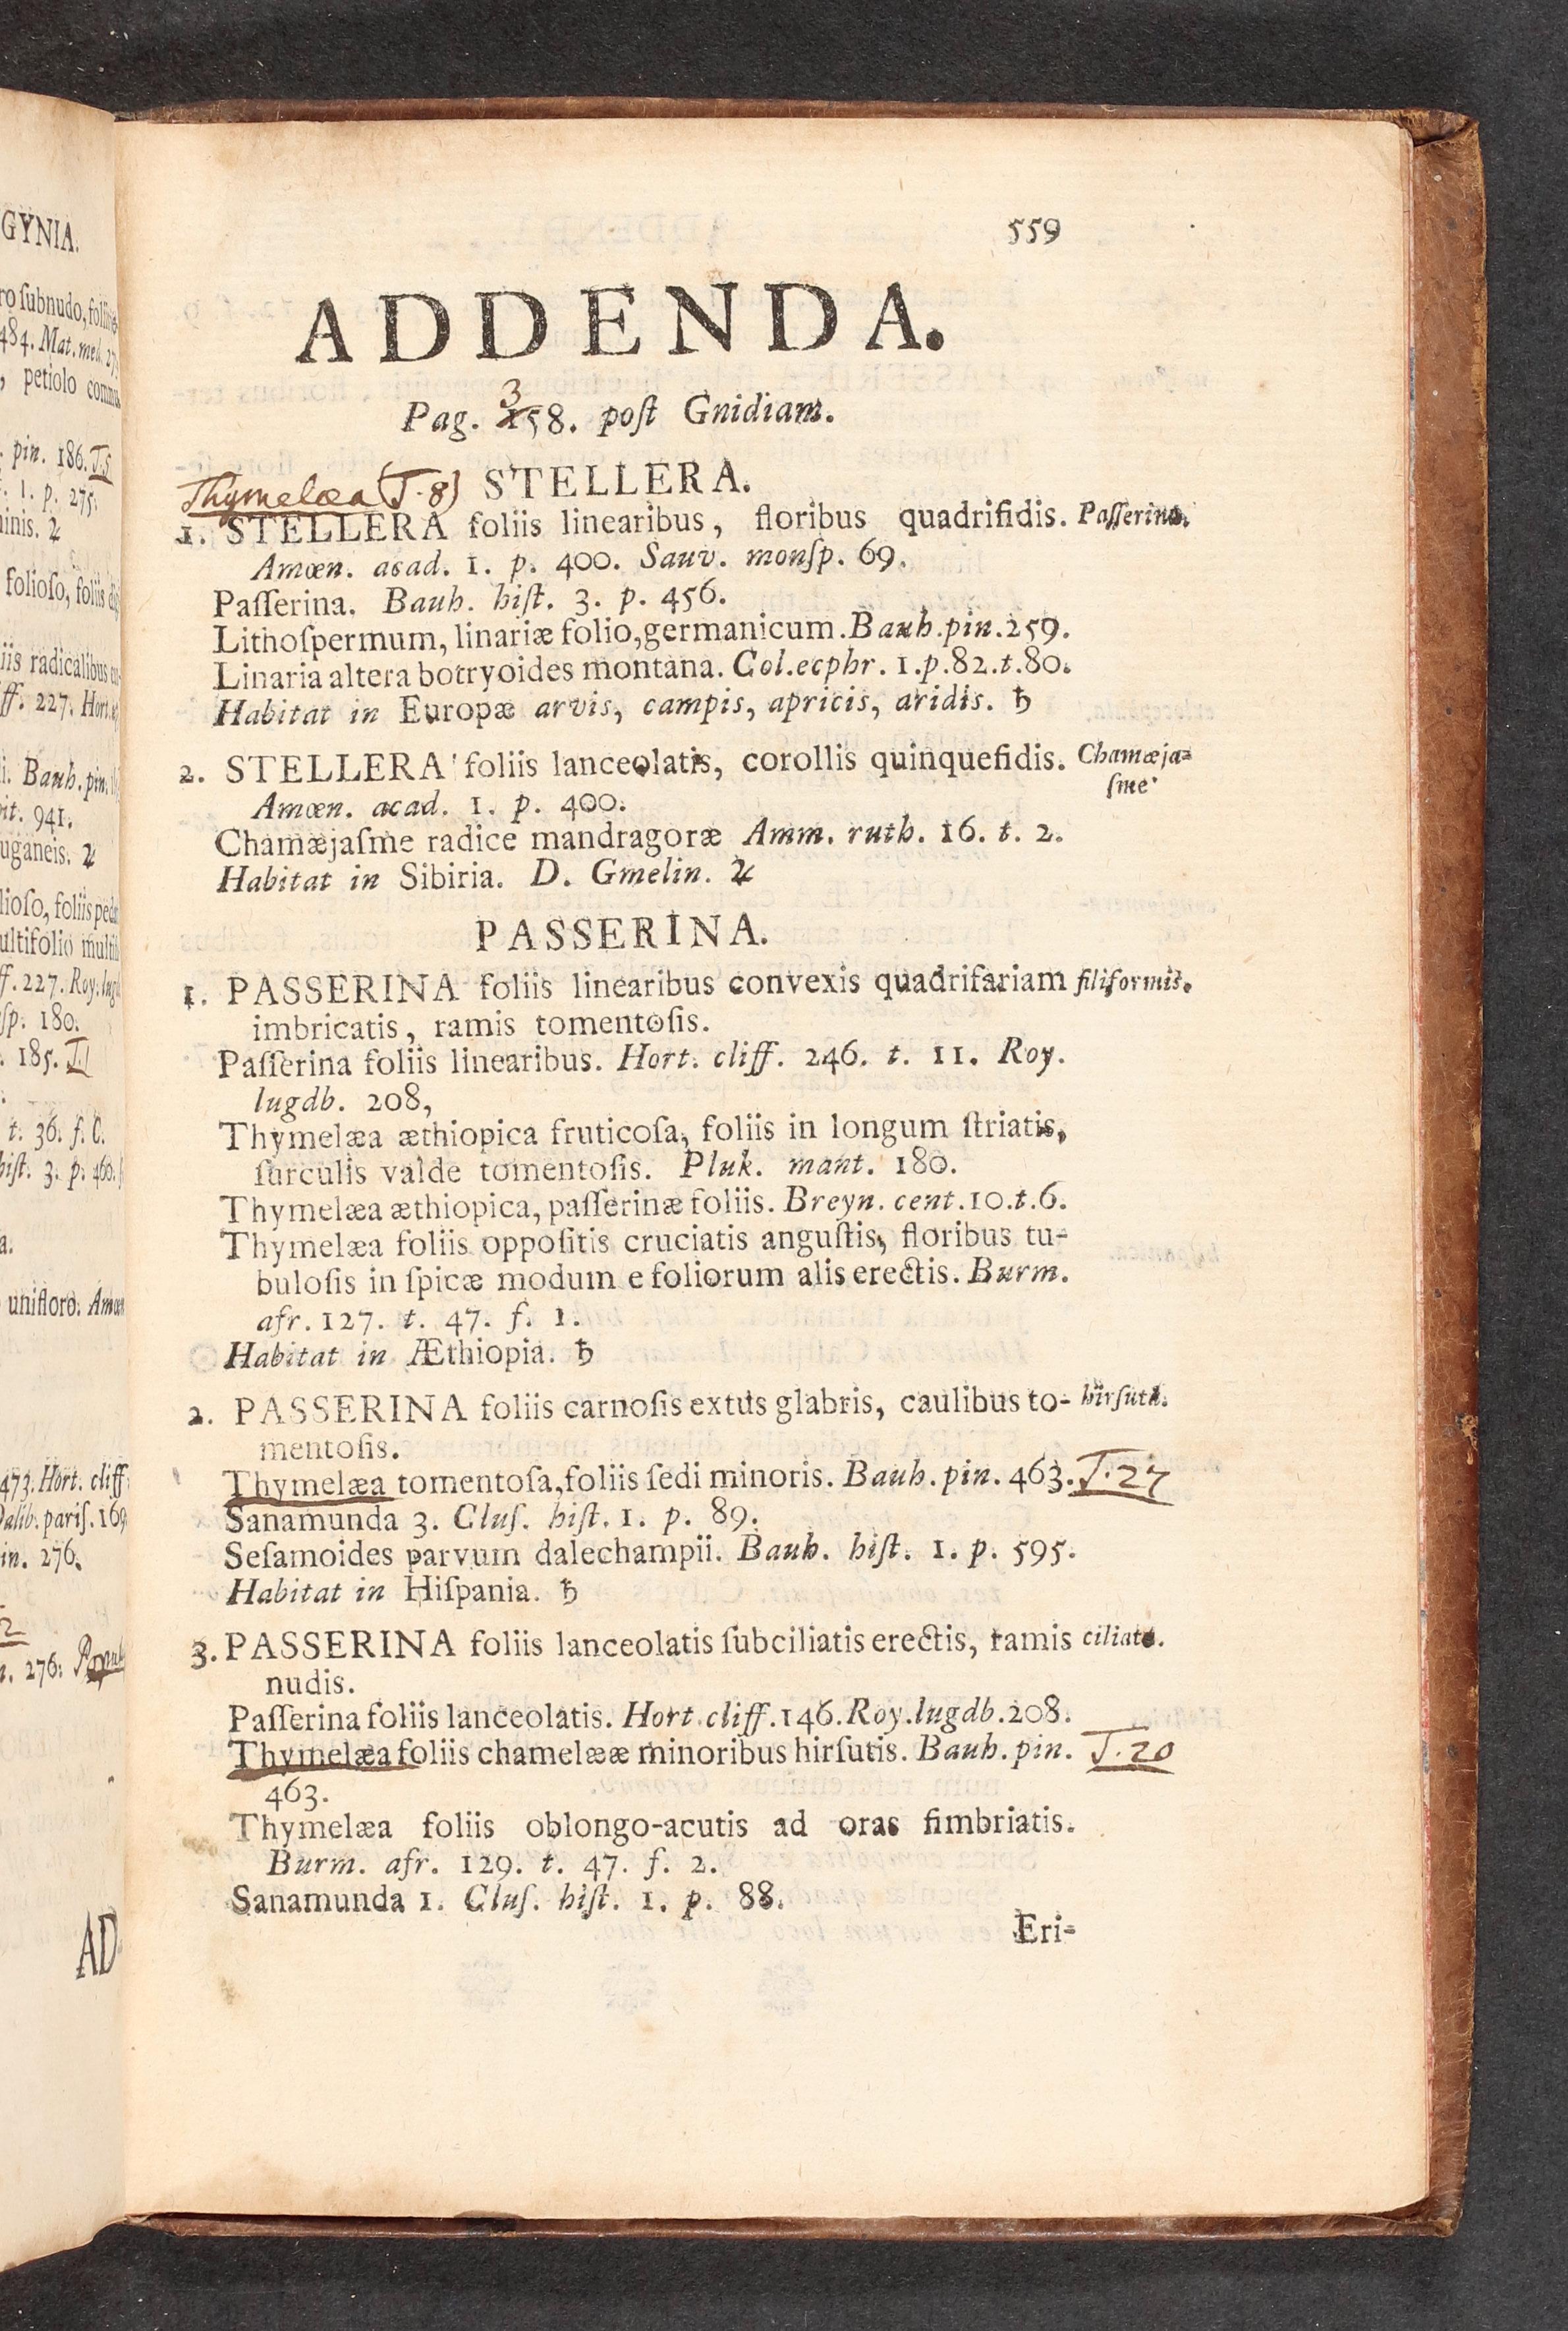 GYNIA.
ro ſubnudo, foliis
484. Mat. med. 27
, petiolo commu
pin. 186. T.5
. 1. p. 275.
ninis. ♃
folioſo, foliis
iis radicalibus
ff. 227. Hort.
i. Bauh. pin.
it. 941.
uganeis. ♃
lioſo, foliis peda
ultifolio multi
ff. 227. Roy. lugd
ſp. 180.
. 185. T.1
t. 36. f. C.
hiſt. 3. p. 460.
a.
unifloro. Amœn
473. Hort. cliff.
Dalib. pariſ. 169
in. 276.
2
n. 276.
AD
559
ADDENDA.
3
Pag. 158. poſt Gnidiam.
Thymelæa (T.8) STELLERA.
1. STELLERA foliis linearibus, floribus quadrifidis. Paſſerina.
Amœn. acad. 1. p. 400. Sauv. monſp. 69.
Paſſerina. Bauh. hiſt. 3. p. 456.
Lithoſpermum, linariæ folio, germanicum. Bauh. pin. 259.
Linaria altera botryoides montana. Col. ecphr. 1. p. 82. t. 80.
Habitat in Europæ arvis, campis, apricis, aridis. ♄
2. STELLERA foliis lanceolatis, corollis quinquefidis. Chamæja-
ſme
Amœn. acad. 1. p. 400.
Chamæjaſme radice mandragoræ Amm. ruth. 16. t. 2.
Habitat in Sibiria. D. Gmelin. ♃
PASSERINA.
1. PASSERINA foliis linearibus convexis quadrifariam filiformis.
imbricatis, ramis tomentoſis.
Paſſerina foliis linearibus. Hort. cliff. 246. t. 11. Roy.
lugdb. 208,
Thymelæa æthiopica fruticoſa, foliis in longum ſtriatis,
ſurculis valde tomentoſis. Pluk. mant. 180.
Thymelæa æthiopica, paſſerinæ foliis. Breyn. cent. 10. t. 6.
Thymelæa foliis oppoſitis cruciatis anguſtis, floribus tu-
buloſis in ſpicæ modum e foliorum alis erectis. Burm.
afr. 127. t. 47. f. 1.
Habitat in Æthiopia. ♄
2. PASSERINA foliis carnoſis extus glabris, caulibus to- hirſuta.
mentoſis.
Thymelæa tomentoſa, foliis ſedi minoris. Bauh. pin. 463. T.27
Sanamunda 3. Cluſ. hiſt. 1. p. 89.
Seſamoides parvum dalechampii. Bauh. hiſt. 1. p. 595.
Habitat in Hiſpania. ♄
3. PASSERINA foliis lanceolatis ſubciliatis erectis, ramis ciliata.
nudis.
Paſſerina foliis lanceolatis. Hort. cliff. 146. Roy. lugdb. 208.
Thymelæa foliis chamelææ minoribus hirſutis. Bauh. pin. T.20
463.
Thymelæa foliis oblongo-acutis ad oras fimbriatis.
Burm. afr. 129. t. 47. f. 2.
Sanamunda 1. Cluſ. hiſt. 1. p. 88.
Eri-